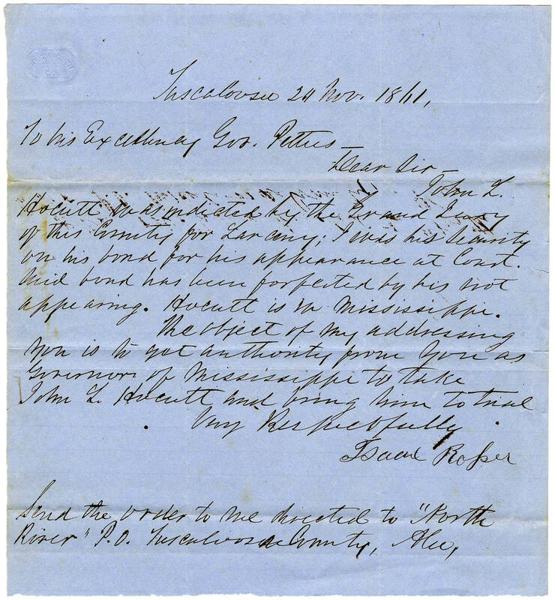 Tuscaloosa 24 Nov. 1861,
To his Excellency Gov. Pettus
Dear Sir
John L.
Hocutt was indicted by the Grand Jury
of this County for Larceny, I was his Security
on his bond for his appearance at Court.
Said bond has been forfected by his not
appearing. Hocutt is in Mississippi.
The object of my addressing
you is to get authority from you as
Governor of Mississippi to take
John L. Hocutt and bring him to trial
Very Respectfully
Isaac Roper
Send the order to me directed to "North
River" P.O. Tuscaloosa County, Ala,